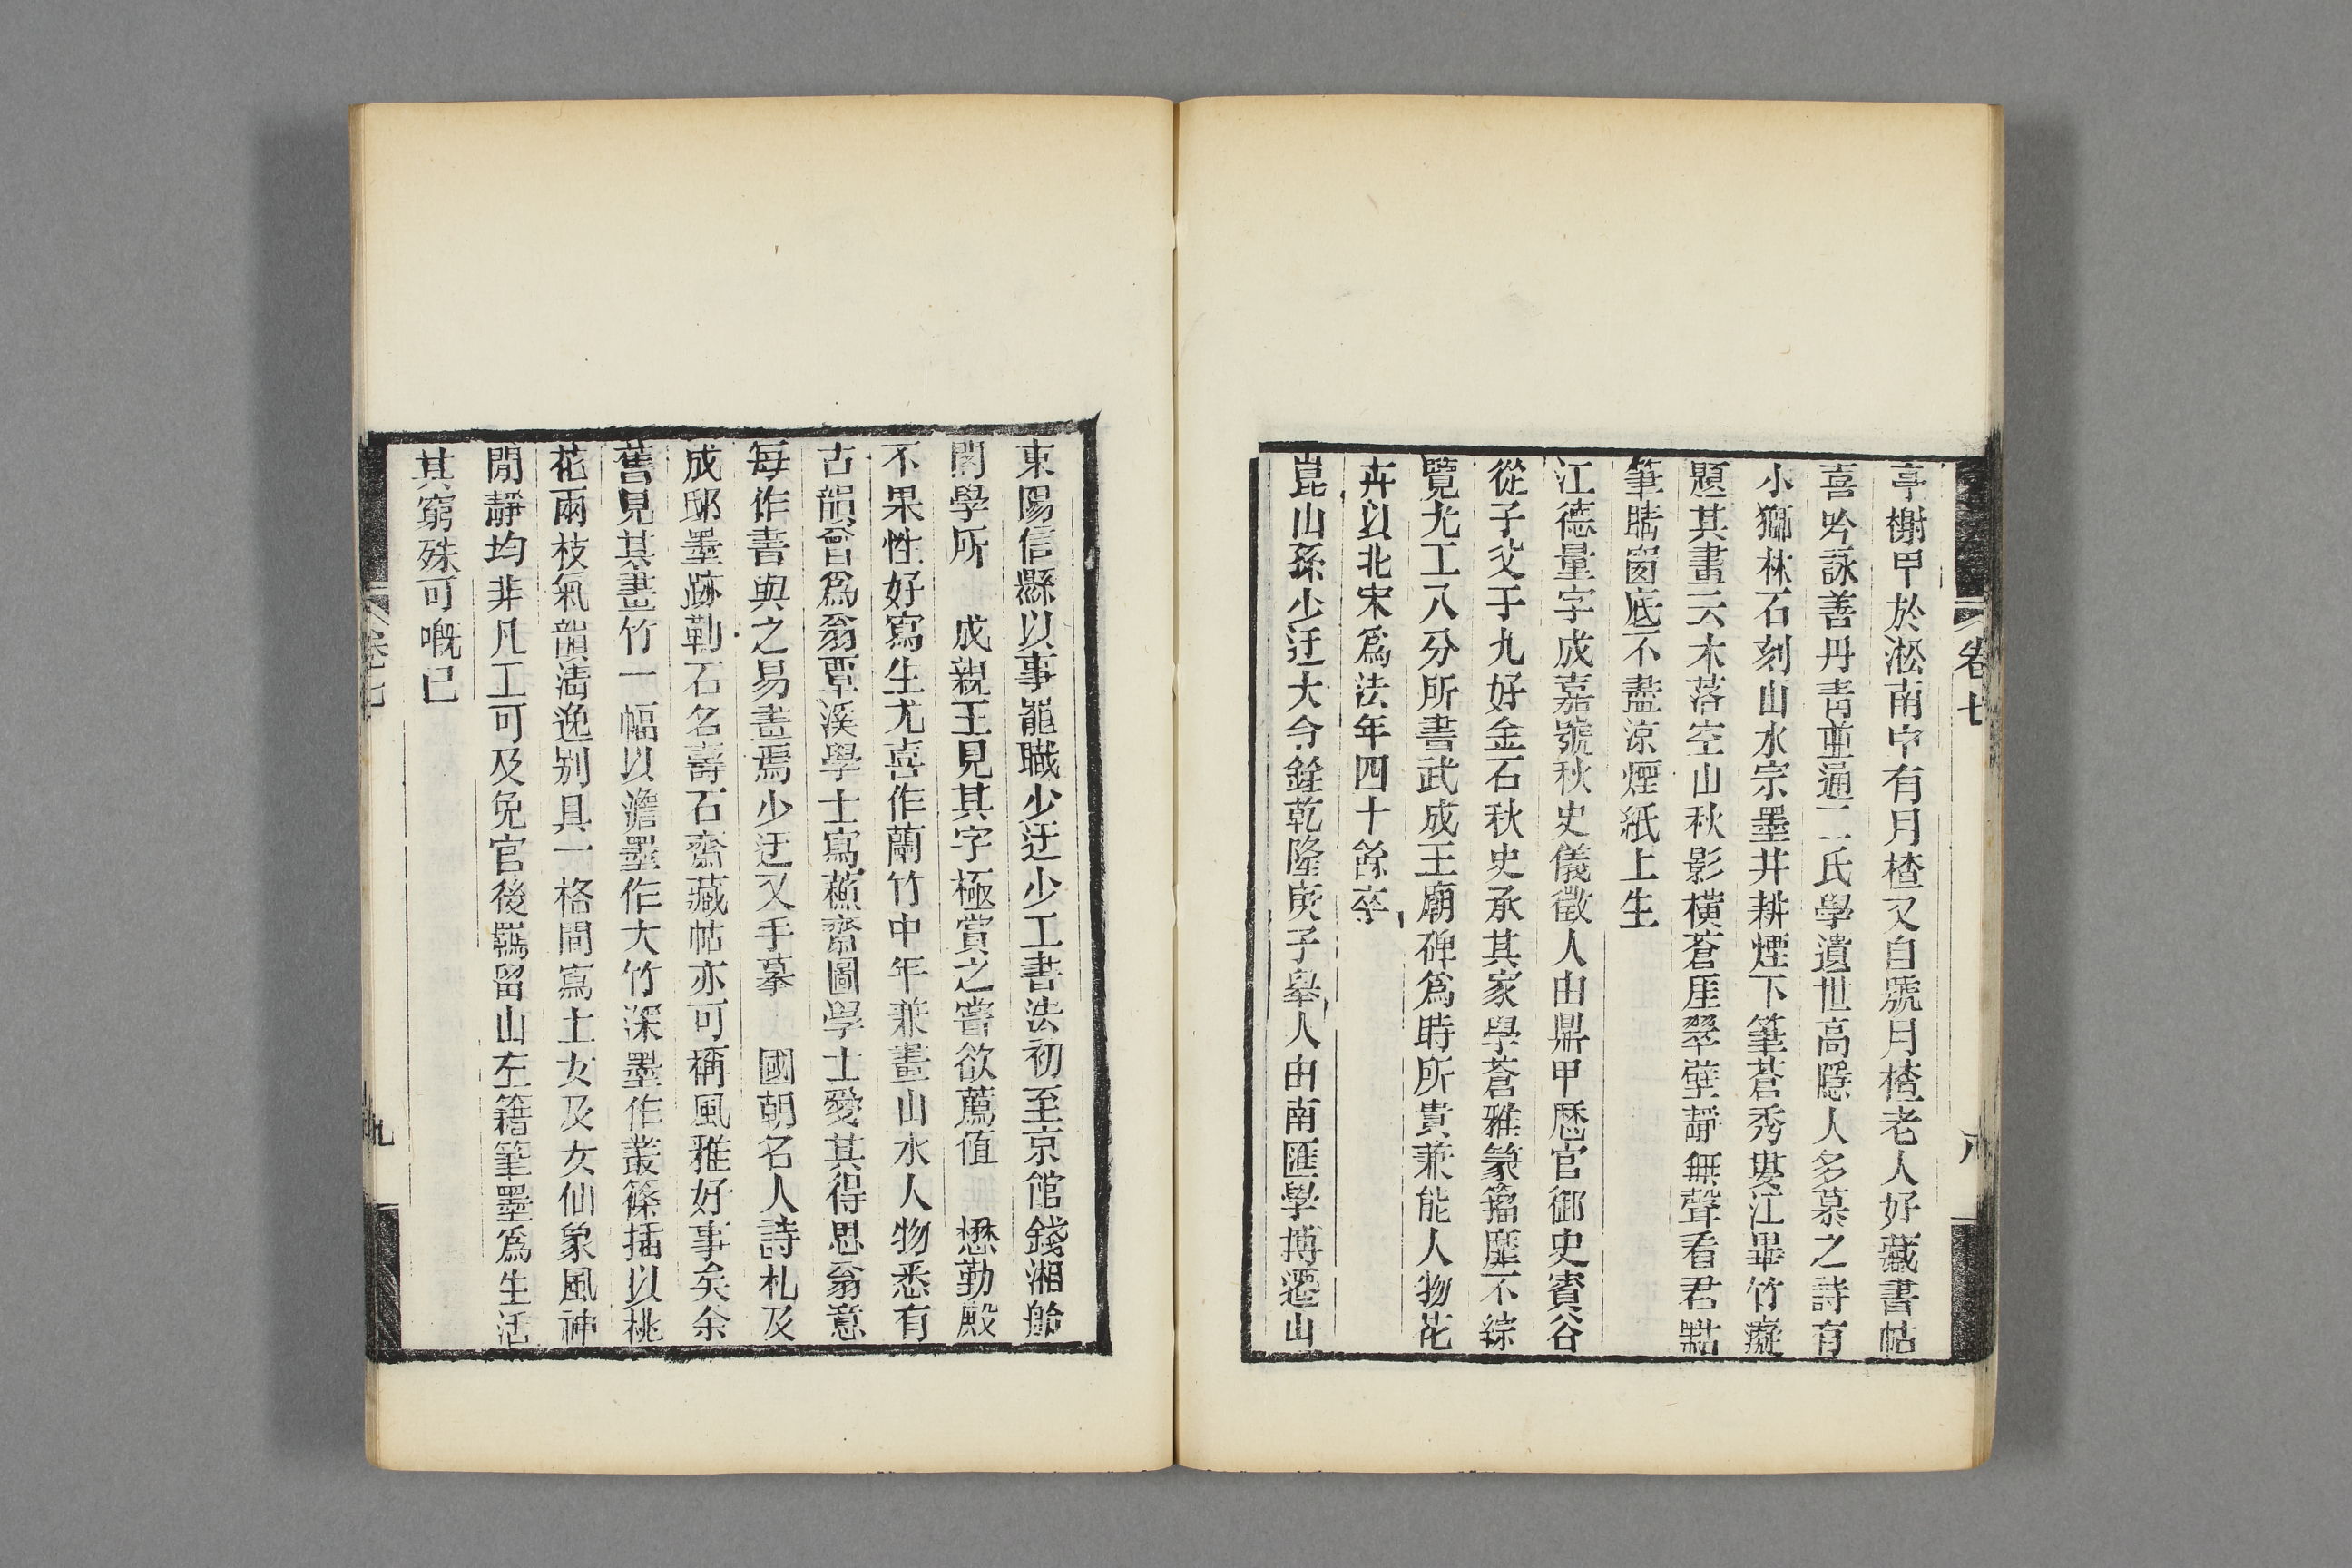 卷七
八
亭榭甲於淞南中有月楂又自號月楂老人好藏書帖
喜吟詠善丹靑並通二氏學遺世高隱人多慕之詩有
小獅林石刻山水宗墨井耕煙下筆蒼秀婁江畢竹癡
題其畫云木落空山秋影橫蒼厓翠壁靜無聲看君點
筆晴窗底不盡涼煙紙上生
江德量字成嘉號秋史儀徵人由鼎甲歷官御史賓谷
從子父于九好金石秋史承其家學蒼雅篆籀靡不綜
覽尤工八分所書武成王廟碑爲時所貴兼能人物花
卉以北宋爲法年四十餘卒
崑山孫少迂大令銓乾隆庚子舉人由南匯學博遷山
東陽信縣以事罷職少迂少工書法初至京館錢湘舲
閣學所 成親王見其字極賞之嘗欲薦值 懋勤殿
不果性好寫生尤喜作蘭竹中年兼畫山水人物悉有
古韻嘗爲翁覃溪學士寫蘇齋圖學士愛其得思翁意
每作書與之易畫焉少迂又手摹 國朝名人詩札及
成邸墨跡勒石名壽石齋藏帖亦可稱風雅好事矣余
舊見其畫竹一幅以澹墨作大竹深墨作叢篠插以桃
花兩枝氣韻淸逸別具一格間寫士女及女仙象風神
閒靜均非凡工可及免官後羈留山左籍筆墨爲生活
其窮殊可嘅已
卷七
九